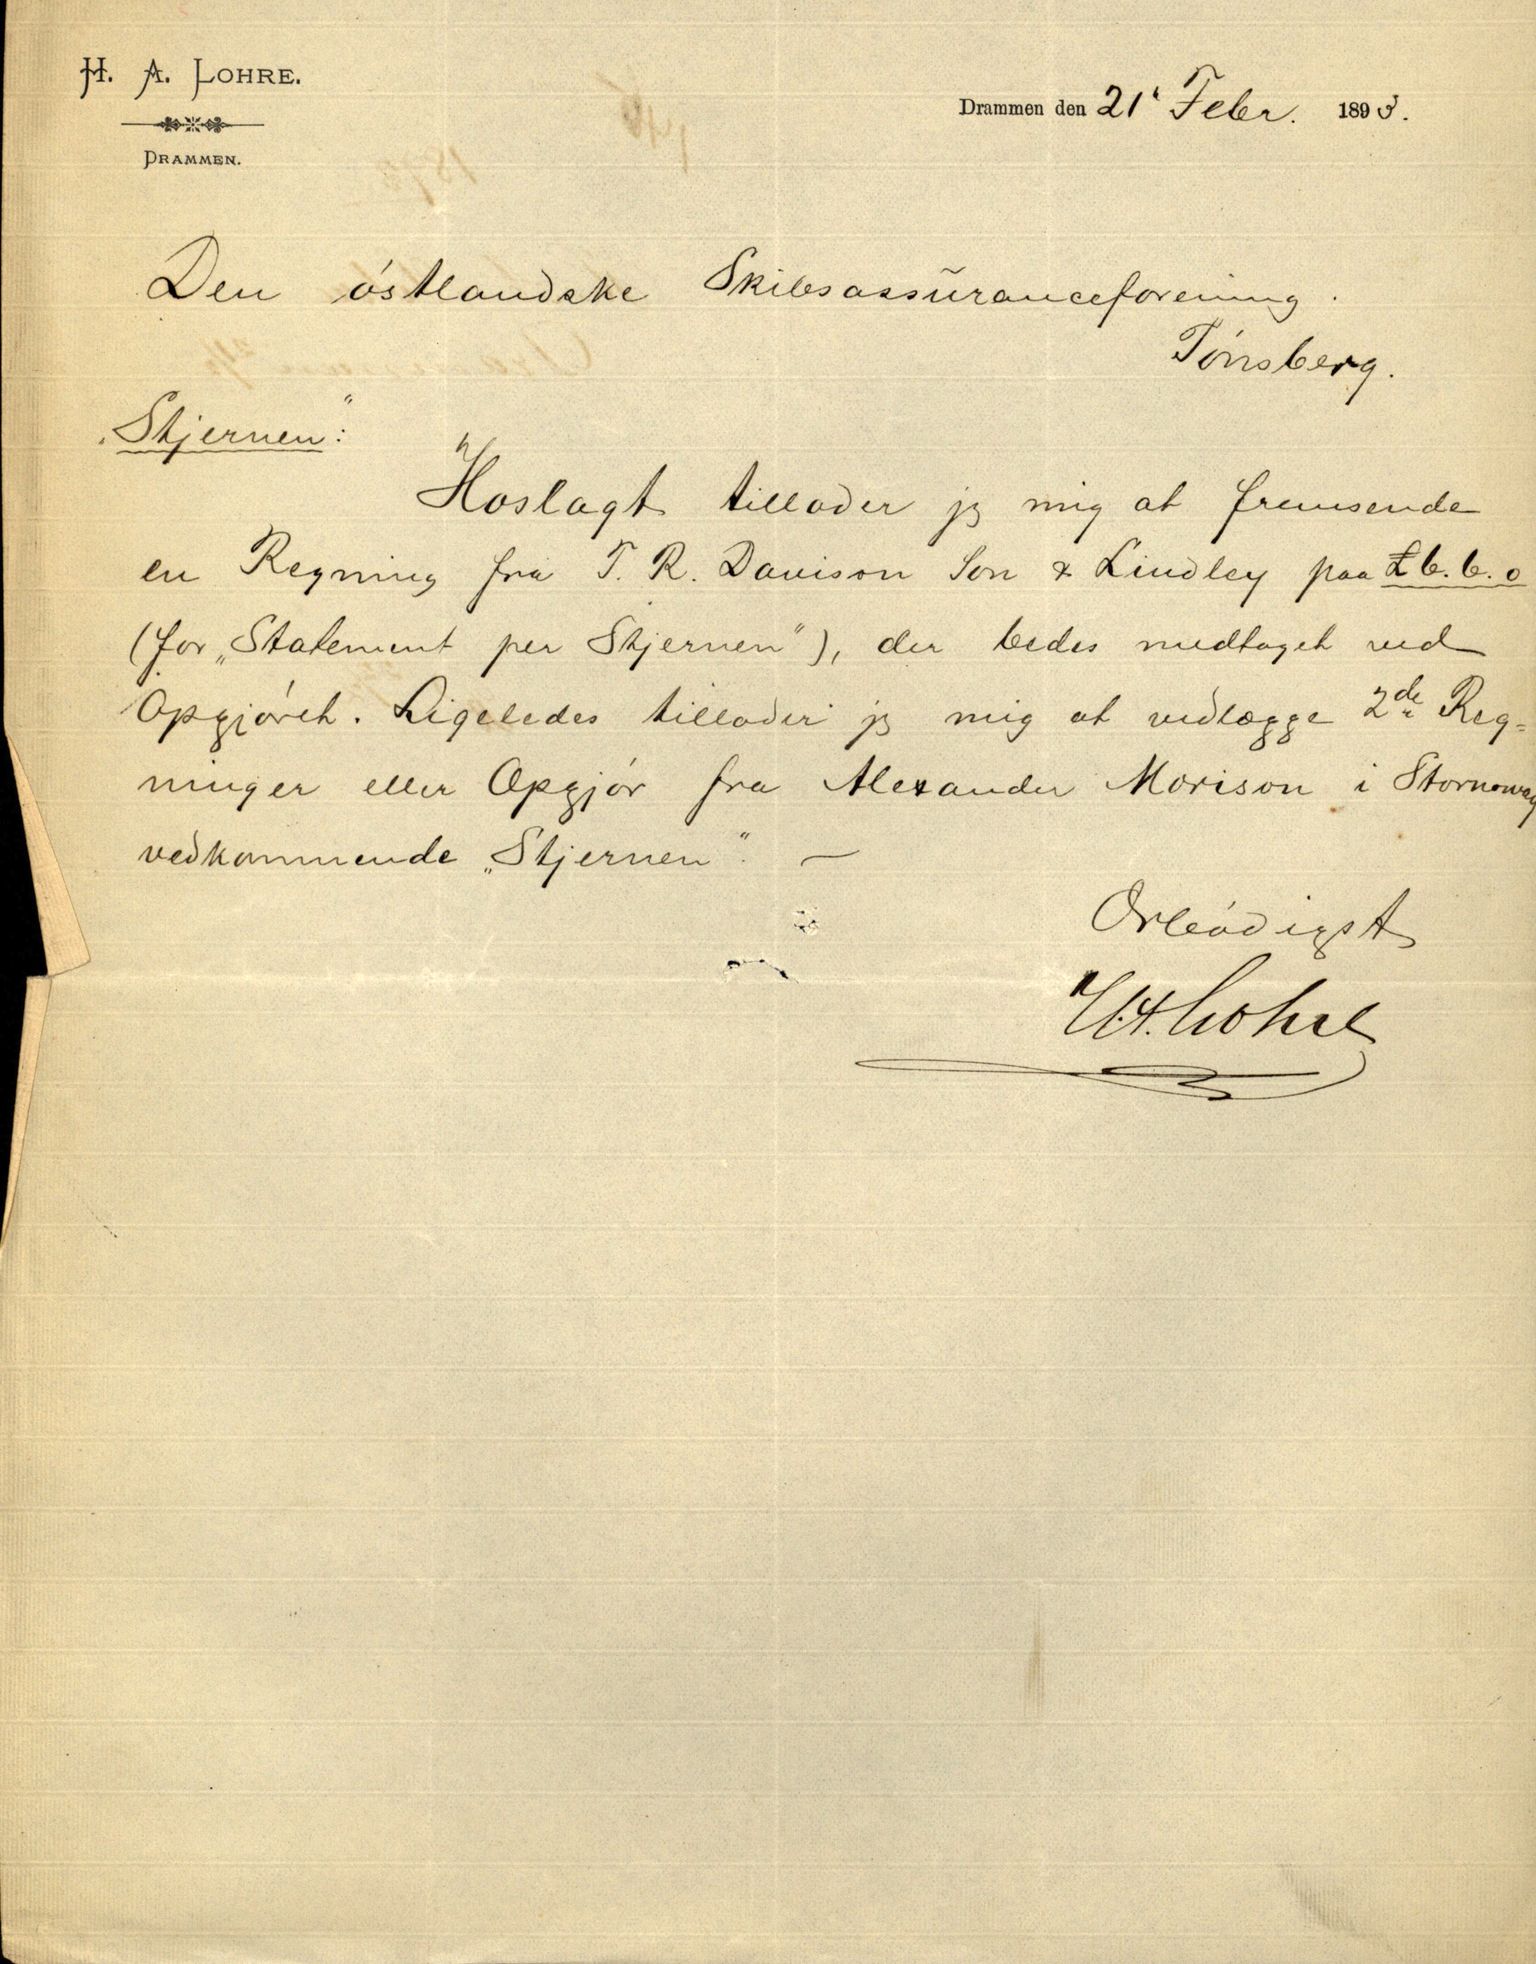 H. A. LOHRE.
DRAMMEN.
Drammen den 21' Febr. 1893.
Den óstlandske Skibsassŭranceforening.
Tónsberg.
„Stjernen":
Hoslagt tillader jg mig at fremsende
en Regning fra T. R. Davison Son & Lindley paa £6.6.0
(for „Statement per Stjernen"), der bedes medtaget ved
Opgjóret. Ligeledes tillader jg mig at vedlægge 2de Reg=
ninger eller Opgjór fra Alexander Morison i Stornoway
vedkommende „Stjernen". —
Ærbódigst
H.A. Lohre